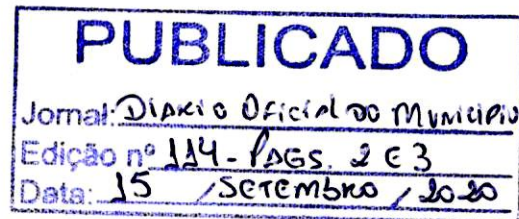 PUBLICADO
Jornal: DIARIO OFICIAL DO MUNICIPIO
Edição nº 114 - PAGS. 2 E 3
Data: 15 / SETEMBRO / 2020